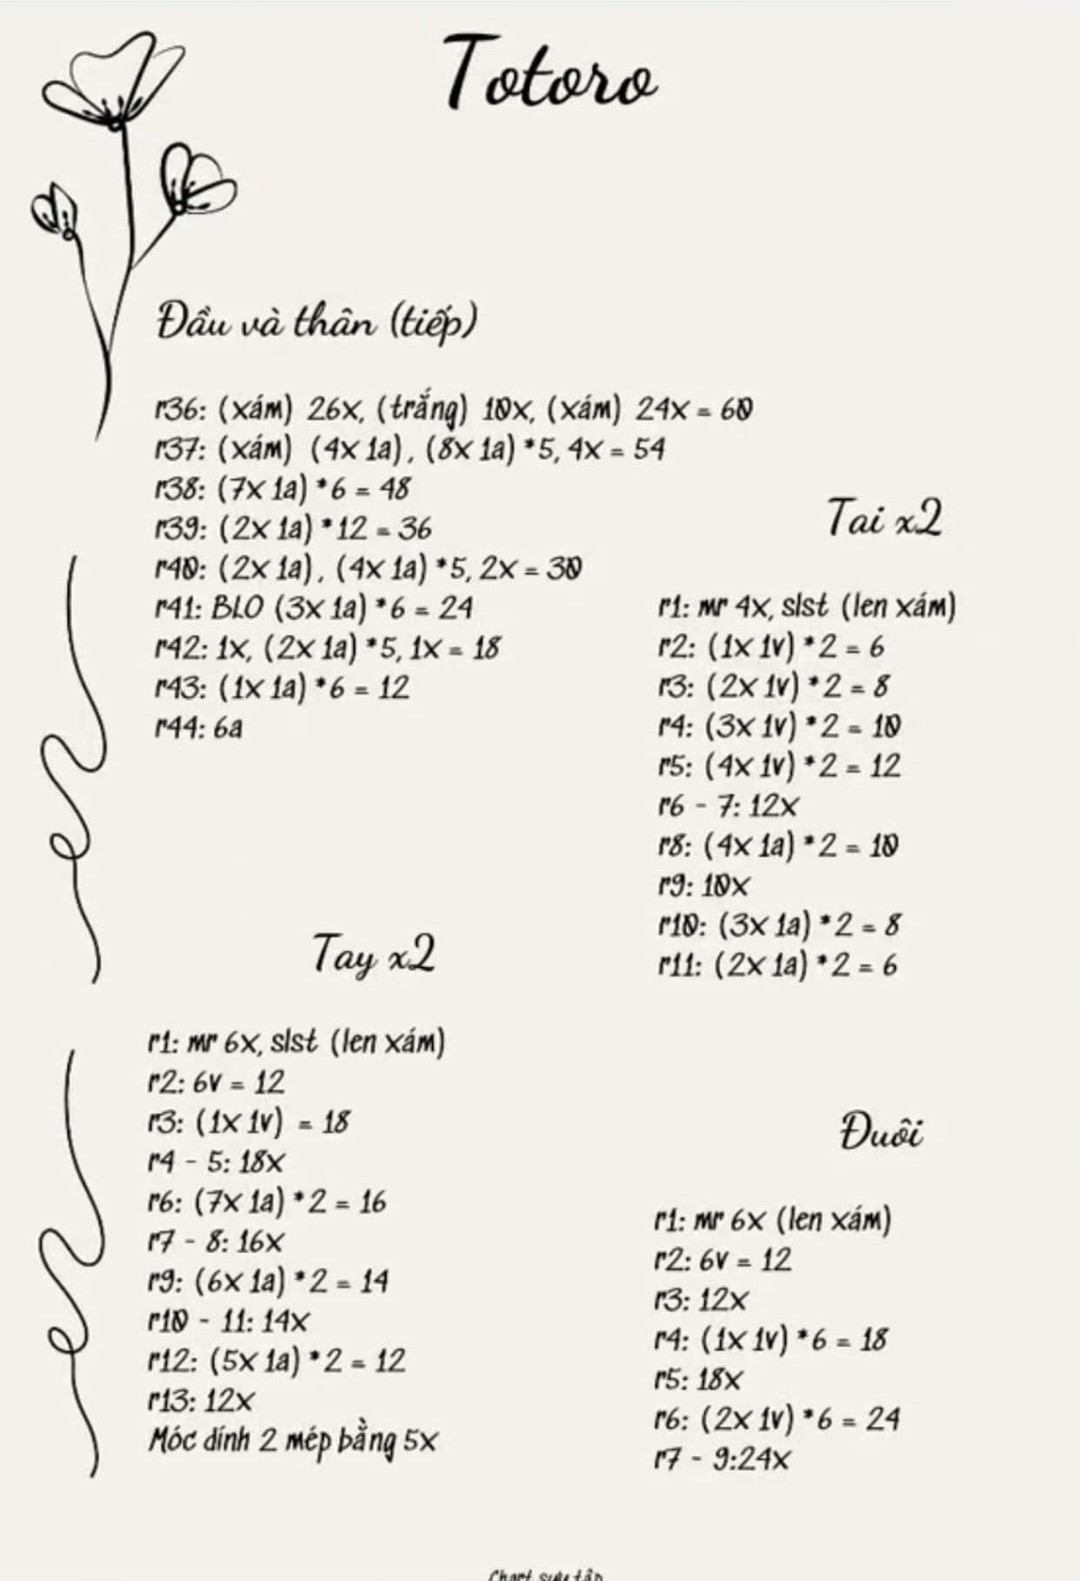 Totoro
Đầu và thân (tiếp)
r36: (xám) 26x, (trắng) 10x, (xám) 24x = 60
r37: (xám) (4x 1a), (8x 1a) *5, 4x = 54
r38: (7x 1a) *6 = 48
r39: (2x 1a) *12 = 36
r40: (2x 1a), (4x 1a) *5, 2x = 30
r41: BLO (3x 1a) *6 = 24
r42: 1x, (2x 1a) *5, 1x = 18
r43: (1x 1a) *6 = 12
r44: 6a
Tai x2
r1: mr 4x, slst (len xám)
r2: (1x 1v) *2 = 6
r3: (2x 1v) *2 = 8
r4: (3x 1v) *2 = 10
r5: (4x 1v) *2 = 12
r6 - 7: 12x
r8: (4x 1a) *2 = 10
r9: 10x
r10: (3x 1a) *2 = 8
r11: (2x 1a) *2 = 6
Tay x2
r1: mr 6x, slst (len xám)
r2: 6v = 12
r3: (1x 1v) = 18
r4 - 5: 18x
r6: (7x 1a) *2 = 16
r7 - 8: 16x
r9: (6x 1a) *2 = 14
r10 - 11: 14x
r12: (5x 1a) *2 = 12
r13: 12x
Móc dính 2 mép bằng 5x
Đuôi
r1: mr 6x (len xám)
r2: 6v = 12
r3: 12x
r4: (1x 1v) *6 = 18
r5: 18x
r6: (2x 1v) *6 = 24
r7 - 9:24x
Chart sưu tầm